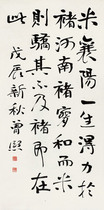 米襄陽一生得力於
褚河南褚寬和而米
則驕其不及褚即在
此 戊辰新秋曾熙